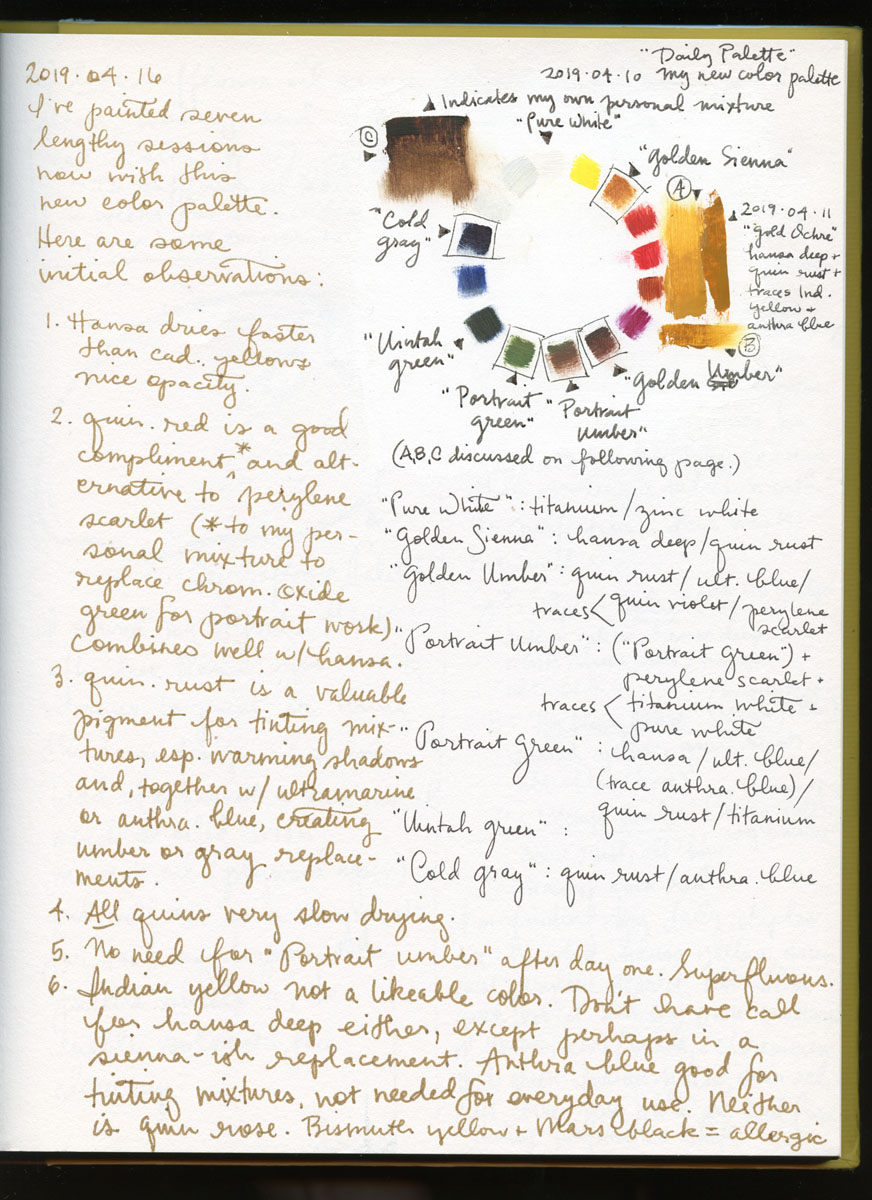 2019·04·16
I've painted seven
lengthy sessions
now with this
new color palette.
Here are some
initial observations:
1. Hansa dries faster
than cad. yellows
nice opacity.
2. quin. red is a good
compliment,* and alt-
ernative to perylene
scarlet (* to my per-
sonal mixture to
replace chrom. oxide
green for portrait work)
Combines well w/hansa.
3. quin. rust is a valuable
pigment for tinting mix-
tures, esp. warming shadows
and, together w/ ultramarine
or anthra. blue, creating
umber or gray replace-
ments.
4. All quins very slow drying.
5. No need for "Portrait umber" after day one. Superfluous.
6. Indian yellow not a likeable color. Don't have call
for hansa deep either, except perhaps in a
sienna-ish replacement. Anthra blue good for
tinting mixtures, not needed for everyday use. Neither
is quin rose. Bismuth yellow + Mars black = allergic
"Daily Palette"
2019·04·10 my new color palette
▲ Indicates my own personal mixture
"Pure White"
C
"Golden Sienna"
A
"Cold
gray"
2019·04·11
"Gold Ochre"
hansa deep +
quin rust +
traces Ind.
yellow +
anthra blue
B
"Uintah
green"
"Golden Umber"
"Portrait
green"
"Portrait
Umber"
(A,B,C discussed on following page.)
"Pure White": titanium/zinc white
"Golden Sienna": hansa deep/quin rust
"Golden Umber": quin rust/ult. blue/
traces < quin violet/perylene
scarlet
"Portrait Umber": ("Portrait Green") +
perylene scarlet +
traces < titanium white +
pure white
"Portrait Green": hansa/ult. blue/
(trace anthra. blue)/
quin rust/titanium
"Uintah green":
"Cold gray": quin rust/anthra. blue